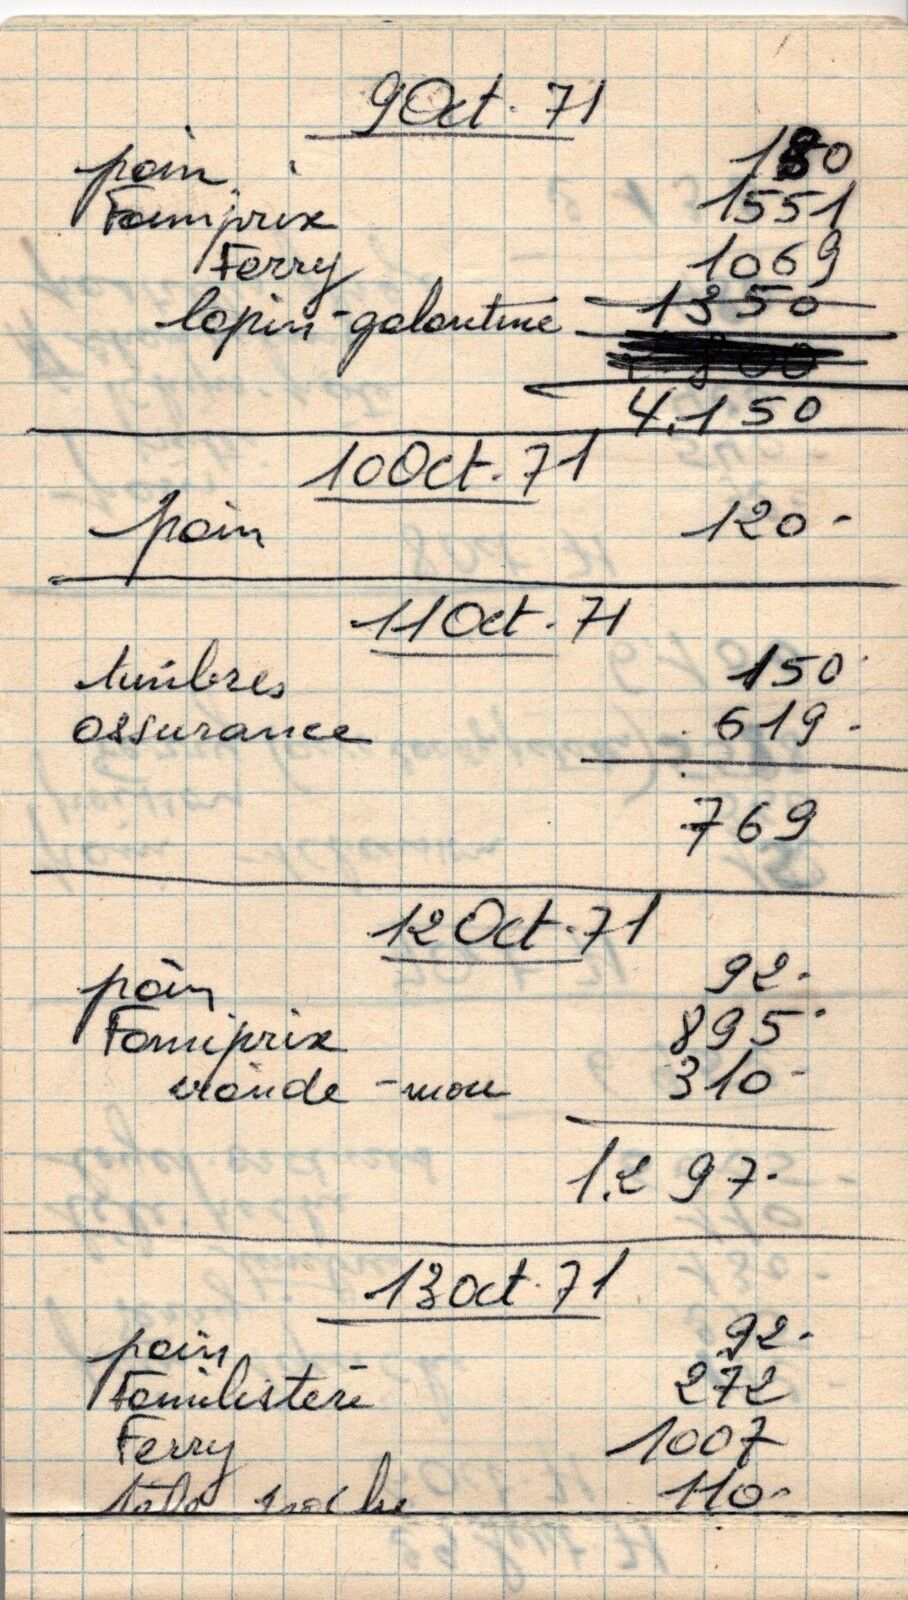 9 Oct. 71
pain 180
Famiprix 1551
Ferry 1069
lapin-galantine 1350
4.150
10 Oct. 71
pain 120-
11 Oct. 71
timbres 150
assurance 619.
769
12 Oct. 71
pain 92.
Famiprix 895.
viande - mou 310-
1.297.
13 Oct. 71
pain 92.
Familistère 272
Ferry 1007
110-